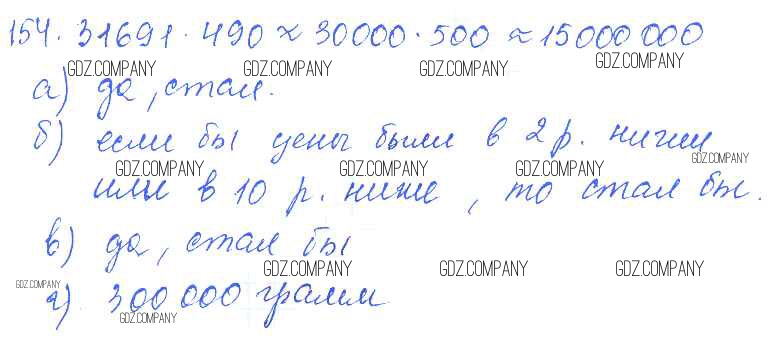 154. 31691 · 490 ≈ 30000 · 500 ≈ 15000 000
GDZ.COMPANY GDZ.COMPANY GDZ.COMPANY GDZ.COMPANY
а) да, стал.
б) если бы цены были в 2 р. ниже
GDZ.COMPANY GDZ.COMPANY GDZ.COMPANY GDZ.COMPANY
или в 10 р. ниже, то стал бы.
в) да, стал бы
GDZ.COMPANY GDZ.COMPANY GDZ.COMPANY
GDZ.COMPANY
г) 300 000 грамм
GDZ.COMPANY